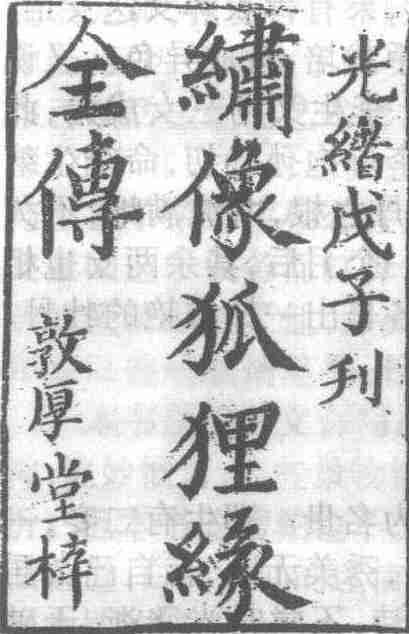 光緒戊子刋
繡像狐狸緣
全傳
敦厚堂梓